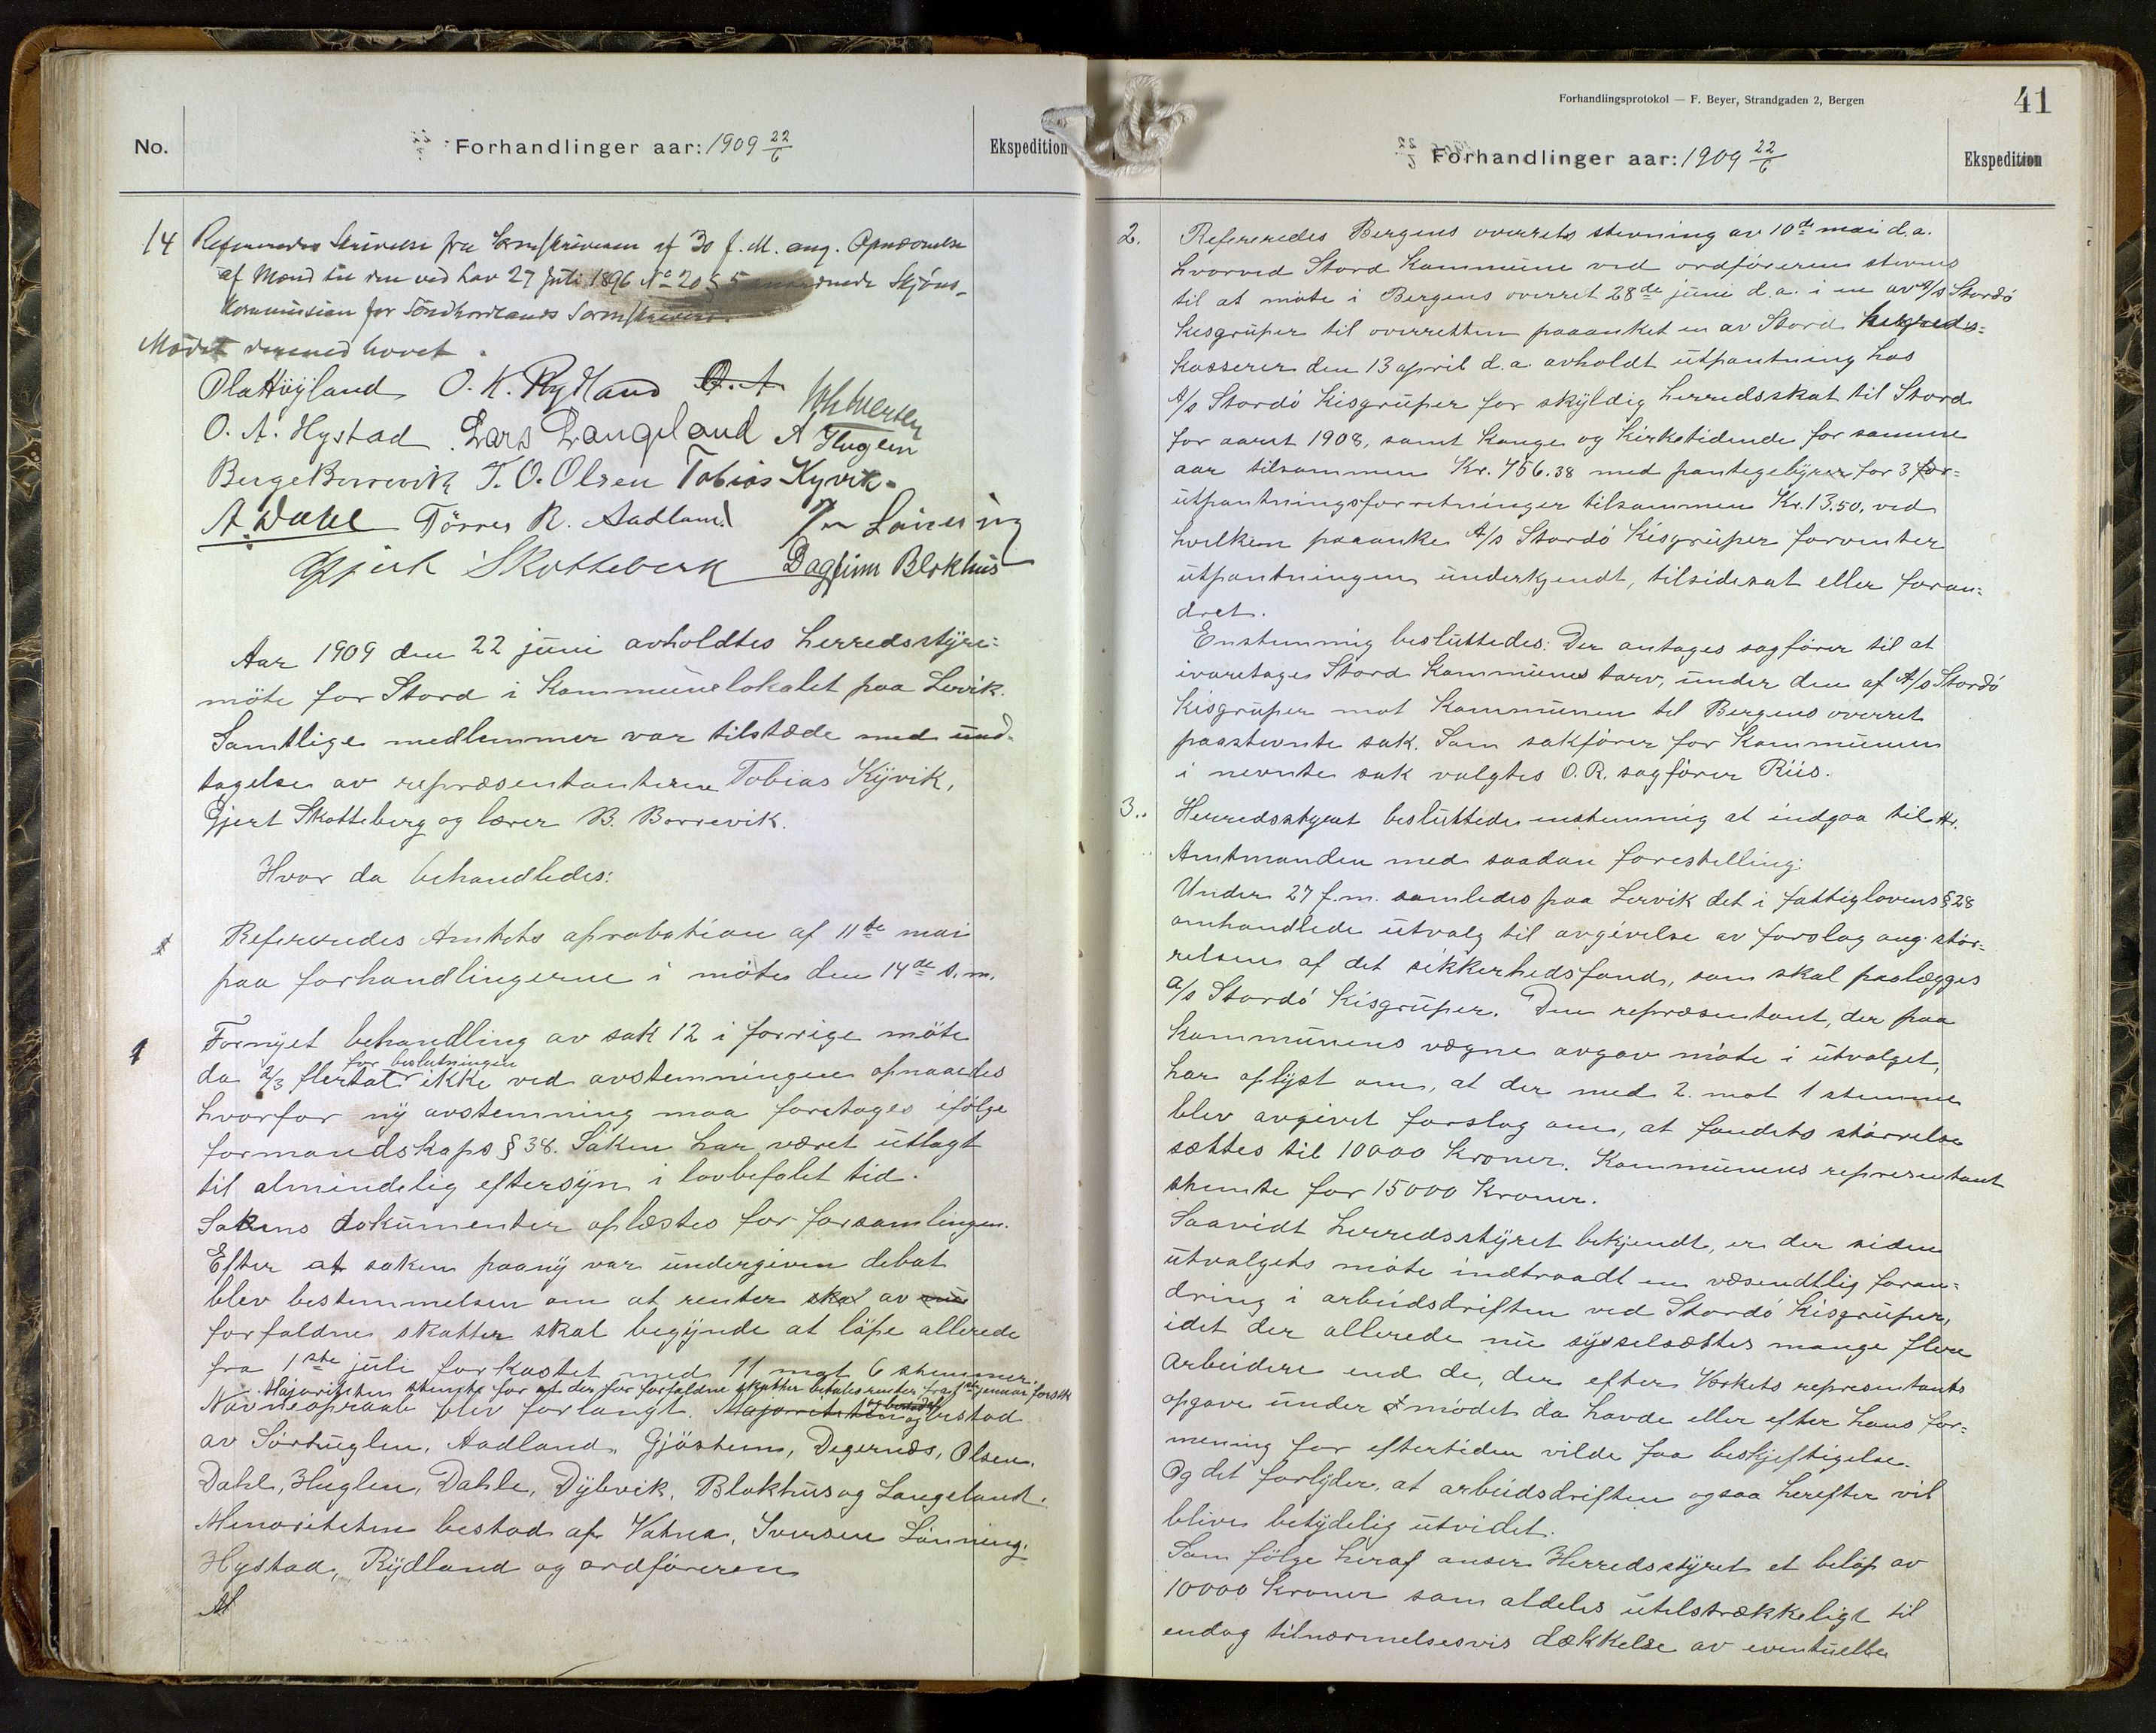 No.
Forhandlinger aar: 1909 22/6
Ekspedition
14 Refereredes Skrivelse fra Sorenskriveren af 30 f. M. ang. Opnævnelse
af Mænd til den ved Lov 27 Juli 1896 No 20 § 5 Skjøns-
kommission for Söndhordlands Sorenskriveri.
Mödet dermed hævet.
Ola Höyland O. K. Rydland O. A.
O. A. Hystad Lars Langeland A Huglen Iversen
Berge Borrevik T. O. Olsen Tobias Kyvik.
A. Dahl Törres R. Aadland Lönning
Gjert Skotteberg Dagfinn Blokhus
Aar 1909 den 22 juni avholdtes herredsstyre-
möte for Stord i Kommunelokalet paa Lervik.
Samtlige medlemmer var tilstæde med und-
tagelse av repræsentanterne Tobias Kyvik,
Gjert Skotteberg og lærer B. Borrevik.
Hvor da behandledes:
Refereredes Amtets aprobation af 11te mai
paa forhandlingerne i möte den 14de s.m.
1 Fornyet behandling av sak 12 i forrige möte
for beslutningen
da 2/3 flertal ikke ved avstemningen opnaaedes
hvorfor ny avstemning maa foretages ifölge
formandskaps § 38. Saken har været utlagt
til almindelig eftersyn i lovbefalet tid.
Sakens dokumenter oplæstes for forsamlingen.
Efter at saken paany var undergiven debat
blev bestemmelsen om at renter skal av
forfaldne skatter skal begynde at löpe allerede
fra 1ste juli forkastet med 11 mot 6 stemmer.
Majoriteten stemte for at der for forfaldne skatter betales renter fra 1ste januar forstk
Navneopraab blev forlangt. Majoriteten og bestod
av Sörhuglen, Aadland, Gjöstein, Degernæs, Olsen,
Dahl, Huglen, Dahle, Dybvik, Blokhus og Langeland.
Minoriteten bestod af Vatna, Iversen Lönning,
Hystad, Rydland og ordföreren
M
Forhandlingsprotokol — F. Beyer, Strandgaden 2, Bergen
41
Forhandlinger aar: 1909 22/6
Ekspedition
2. Refereredes Bergens overrets stevning av 10de mai d.a.
hvorved Stord Kommune ved ordföreren stevnes
til at möte i Bergens overret 28de juni d.a. i en av A/s Stordö
Kisgruper til overretten paaanket en av Stord herreds-
kasserer den 13 april d.a. avholdt utpantning hos
A/s Stordö Kisgruper for skyldig herredsskat til Stord
for aaret 1908, samt Konge og Kirketidende for samme
aar tilsammen Kr. 756.38 med pantegebyrer for 3 for-
utpantningsforretninger tilsammen Kr. 13.50, ved
hvilken paaanke A/s Stordö Kisgruper forventer
utpantningen underkjendt, tilsidesat eller foran-
dret.
Enstemmig besluttedes: Der antages sagförer til at
ivaretage Stord Kommunes tarv, under den af A/s Stordö
Kisgruper mot Kommunen til Bergens overret
paastevnte sak. Som sakförer for Kommunen
i nevnte sak valgtes O. R. sagförer Riis.
3. Herredsstyret besluttede enstemmig at indgaa til Hr.
Amtmanden med saadan forestilling:
Under 27 f.m. samledes paa Lervik det i fattiglovens § 28
omhandlede utvalg til avgivelse av forslag ang. stör-
relsen af det sikkerhedsfond, som skal paalægges
A/s Stordö Kisgruper. Den repræsentant, der paa
Kommunens vegne avgav möte i utvalget,
har oplyst om, at der med 2. mot 1 stemme
blev avgivet forslag om, at fondets störrelse
sættes til 10000 Kroner. Kommunens representant
stemte for 15000 Kroner.
Saavidt herredsstyret bekjendt, er der siden
utvalgets möte indtraadt en væsendtlig foran-
dring i arbeidsdriften ved Stordö Kisgruper,
idet der allerede nu sysselsættes mange flere
arbeidere end de, der efter Værkets representants
opgave under mödet da havde eller efter hans for-
mening for eftertiden vilde faa beskjeftigelse.
Og det forlyder, at arbeidsdriften ogsaa herefter vil
blive betydelig utvidet.
Som fölge heraf anser Herredsstyret et belöp av
10000 Kroner som aldeles utilstrækkeligt til
endog tilnærmelsesvis dækkelse av eventuelle